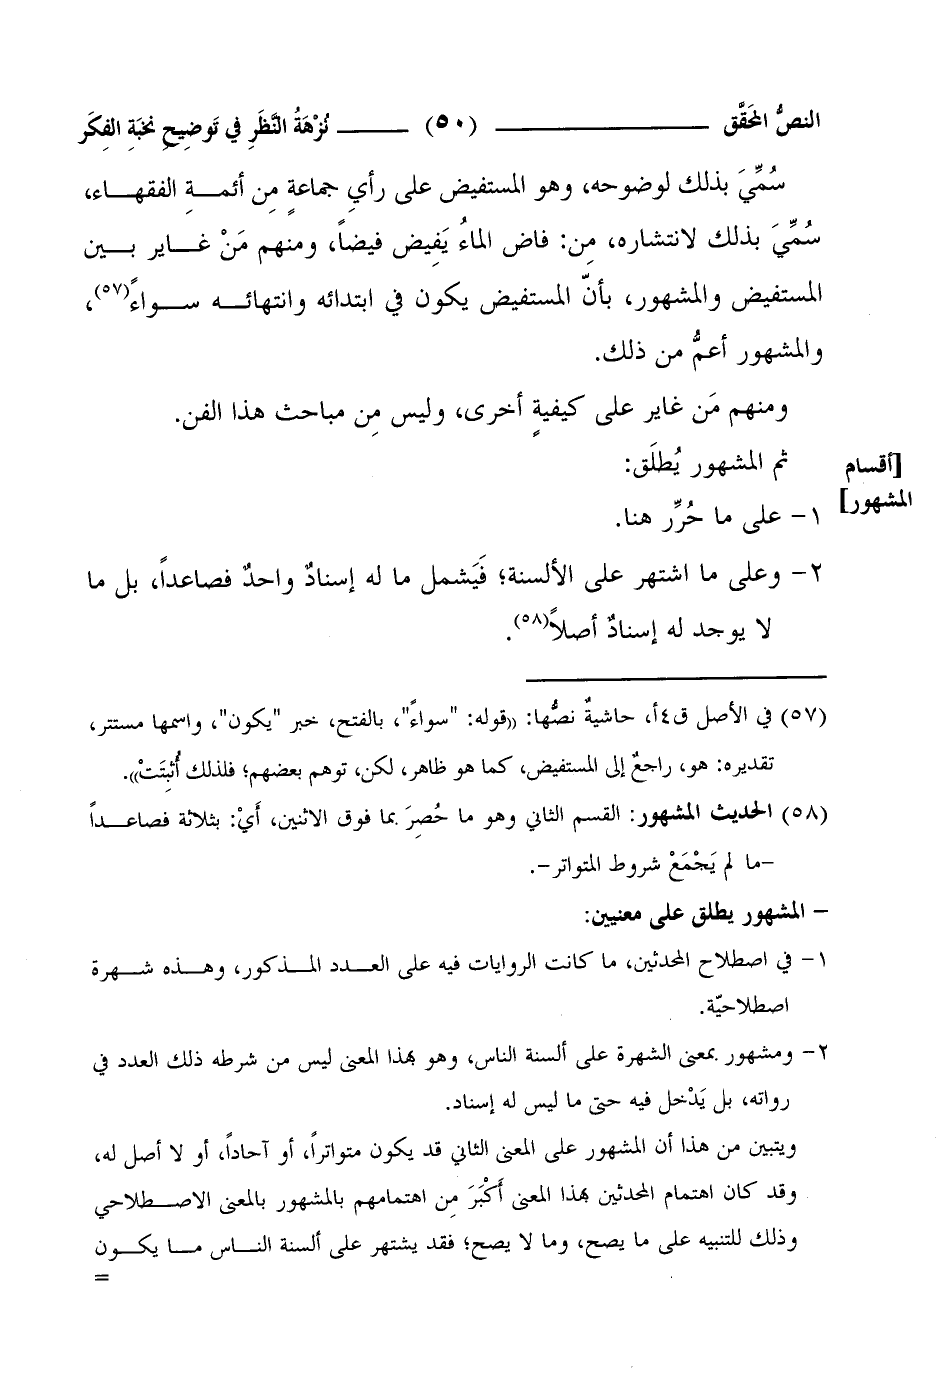 النصُّ المحَقَّق ــــــــــ (٥٠) ــــــــــ نُزْهَةُ النَّظَرِ في تَوضِيحِ نخبَةِ الفِكَر
سُمِّيَ بذلك لوضوحه، وهو المستفيض على رأيِ جماعةٍ مِن أئمــة الفقهــاء،
سُمِّيَ بذلك لانتشاره، مِن: فاض الماءُ يَفِيض فيضاً، ومنهم مَنْ غــاير بــين
المستفيض والمشهور، بأنّ المستفيض يكون في ابتدائه وانتهائــه ســواءً(٥٧)،
والمشهور أعمُّ من ذلك.
ومنهم مَن غاير على كيفيةٍ أخرى، وليس مِن مباحث هذا الفن.
ثم المشهور يُطلَق:
[أقسام
المشهور]
١- على ما حُرِّر هنا.
٢- وعلى ما اشتهر على الألسنة؛ فَيَشمل ما له إسنادٌ واحدٌ فصاعداً، بل ما
لا يوجد له إسنادٌ أصلاً(٥٨).
(٥٧) في الأصل ق٤أ، حاشيةٌ نصُّها: ((قوله: "سواءً"، بالفتح، خبر "يكون"، واسمها مستتر،
تقديره: هو، راجعٌ إلى المستفيض، كما هو ظاهر، لكن، توهم بعضهم؛ فلذلك أُثبِتَتْ)).
(٥٨) الحديث المشهور: القسم الثاني وهو ما حُصِرَ بما فوق الاثنين، أَيْ: بثلاثة فصاعــداً
-ما لم يَجْمَعْ شروط المتواتر-.
- المشهور يطلق على معنيين:
١- في اصطلاح المحدثين، ما كانت الروايات فيه على العــدد المــذكور، وهــذه شــهرة
اصطلاحيّة.
٢- ومشهور بمعنى الشهرة على ألسنة الناس، وهو بهذا المعنى ليس من شرطه ذلك العدد في
رواته، بل يَدْخل فيه حتى ما ليس له إسناد.
ويتبين من هذا أن المشهور على المعنى الثاني قد يكون متواتراً، أو آحاداً، أو لا أصل له،
وقد كان اهتمام المحدثين بهذا المعنى أَكْبَرَ مِن اهتمامهم بالمشهور بالمعنى الاصــطلاحي
وذلك للتنبيه على ما يصح، وما لا يصح؛ فقد يشتهر على ألسنة النــاس مــا يكــون
=